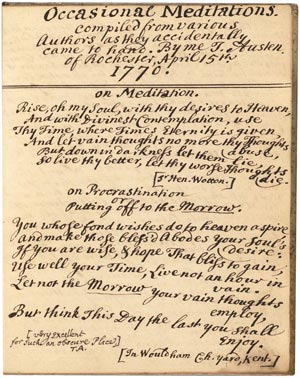 Occasional Meditations.
compiled from various
Authors as they accidentally
came to hand. By me T. Austen
of Rochester, April 15th,
1770.
on Meditation.
Rise, oh my Soul, with thy desires to Heaven,
And with Divinest Contemplation, use
Thy Time, where Times Eternity is given
And let vain thoughts no more thy Thoughts
abuse,
But down in darkness let them lie
So live thy better, let thy worse Thoughts
die.
[S. Hen. Wotton.]
on Procrastination
or
Putting off to the Morrow.
You whose fond wishes do to heaven aspire
and make those bless'd Abodes your Soul's
desire:
If you are wise, & hope That bliss to gain,
Use well your Time, Live not an hour in
vain.
Let not the Morrow your vain thoughts
employ,
But think This Day the last you Shall
Enjoy.
[very Excellent
for Such an obscure Place]
T.A.
[In Wouldham Ch. yard, Kent.]